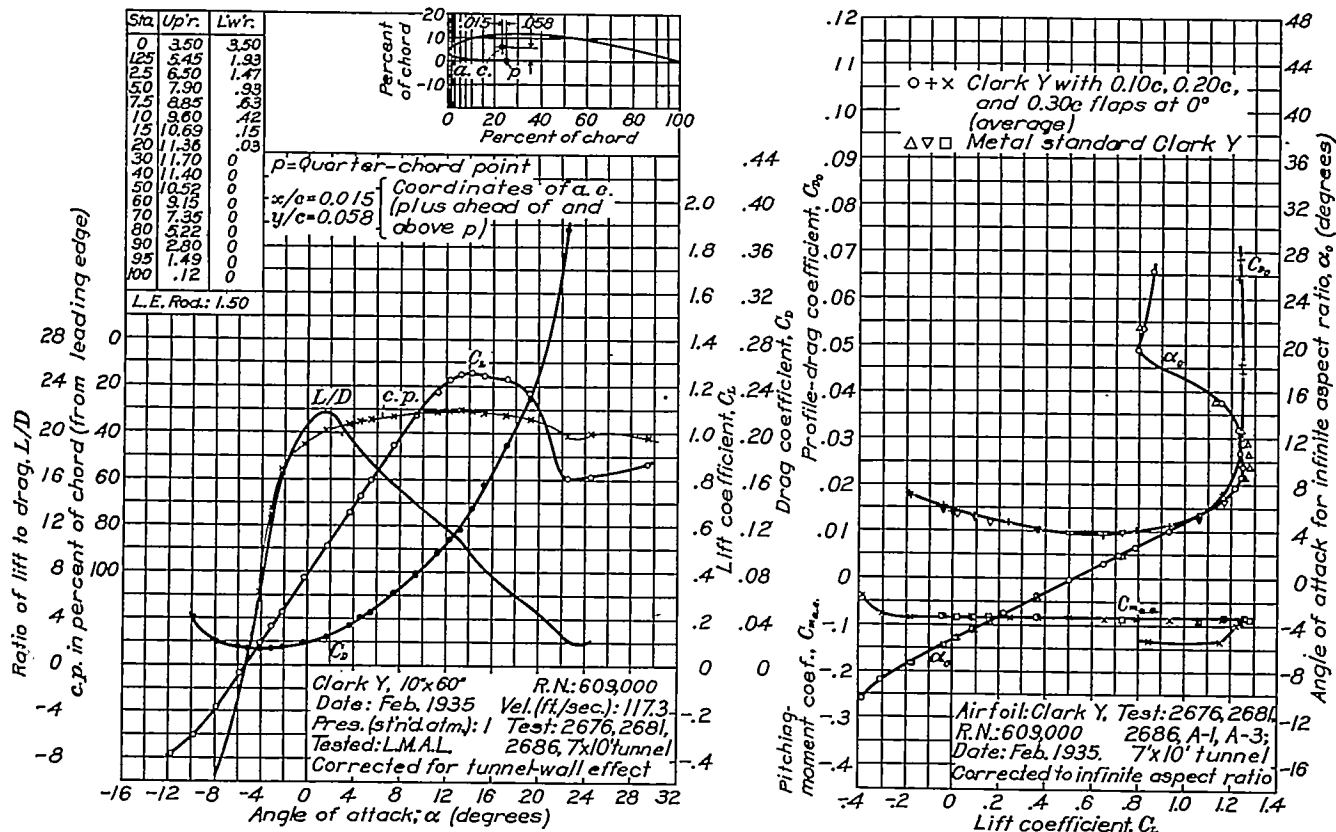 Sta. Up'r. L'w'r.
0 3.50 3.50
1.25 5.45 1.93
2.5 6.50 1.47
5.0 7.90 .93
7.5 8.85 .63
10 9.60 .42
15 10.69 .15
20 11.36 .03
30 11.70 0
40 11.40 0
50 10.52 0
60 9.15 0
70 7.35 0
80 5.22 0
90 2.80 0
95 1.49 0
100 .12 0
L.E. Rad.: 1.50
Percent of chord
20
10
0
-10
.015
.058
a.c.
p
0 20 40 60 80 100
Percent of chord
p=Quarter-chord point
x/c=0.015
y/c=0.058
Coordinates of a.c.
(plus ahead of and
above p)
Ratio of lift to drag, L/D
28
24
20
16
12
8
4
0
-4
-8
c.p. in percent of chord (from leading edge)
0
20
40
60
80
100
L/D
c.p.
C_L
C_D
2.0
1.8
1.6
1.4
1.2
1.0
.8
.6
.4
.2
0
-.2
-.4
Lift coefficient, C_L
.44
.40
.36
.32
.28
.24
.20
.16
.12
.08
.04
0
Drag coefficient, C_D
Clark Y, 10"x60" R.N.: 609,000
Date: Feb. 1935 Vel.(ft./sec.): 117.3
Pres.(st'nd.atm.): 1 Test: 2676, 2681,
Tested: L.M.A.L. 2686, 7x10' tunnel
Corrected for tunnel-wall effect
-16 -12 -8 -4 0 4 8 12 16 20 24 28 32
Angle of attack, α (degrees)
.12
.11
.10
.09
.08
.07
.06
.05
.04
.03
.02
.01
0
Profile-drag coefficient, C_D0
-.1
-.2
-.3
-.4
Pitching-
moment coef., C_m a.c.
o + x Clark Y with 0.10c, 0.20c,
and 0.30c flaps at 0°
(average)
△ ▽ □ Metal standard Clark Y
C_D0
α_0
C_m a.c.
α_0
48
44
40
36
32
28
24
20
16
12
8
4
0
-4
-8
-12
-16
Angle of attack for infinite aspect ratio, α_0 (degrees)
Airfoil: Clark Y, Test: 2676, 2681,
R.N.: 609,000 2686, A-1, A-3;
Date: Feb. 1935. 7'x10' tunnel
Corrected to infinite aspect ratio
-.4 -.2 0 .2 .4 .6 .8 1.0 1.2 1.4
Lift coefficient, C_L